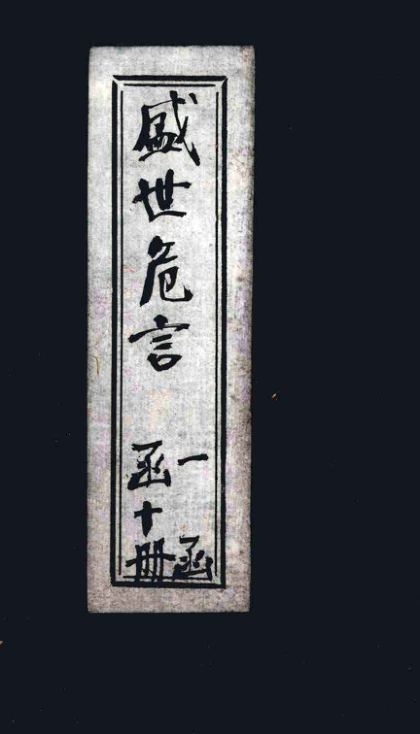 盛世危言
一函
函十冊